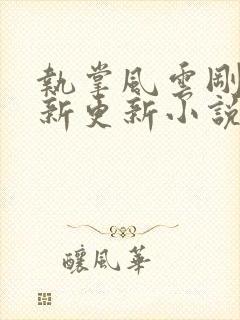 執掌風雲剛
新更新小說
釀風華